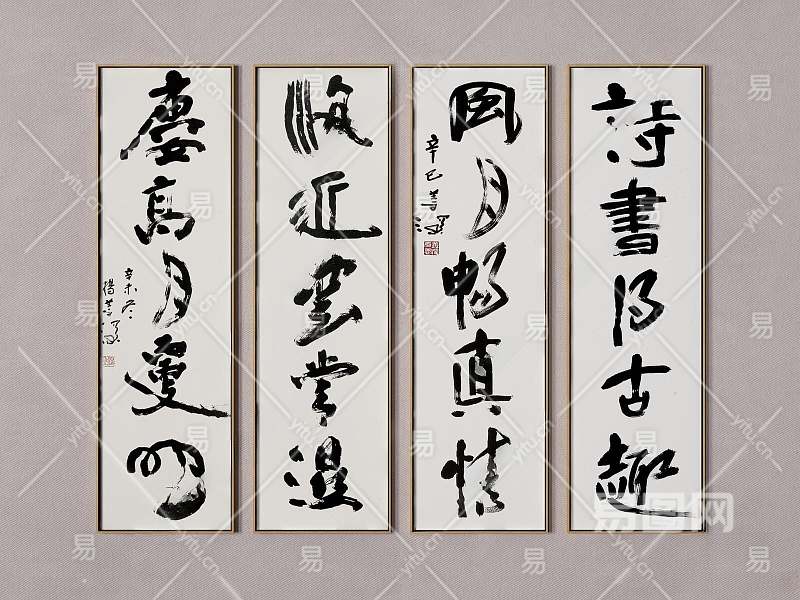 詩書得古趣
風月暢真情
辛巳善深
海近雲常濕
臺高月更明
辛未冬
楊善深
易图网
yitu.cn